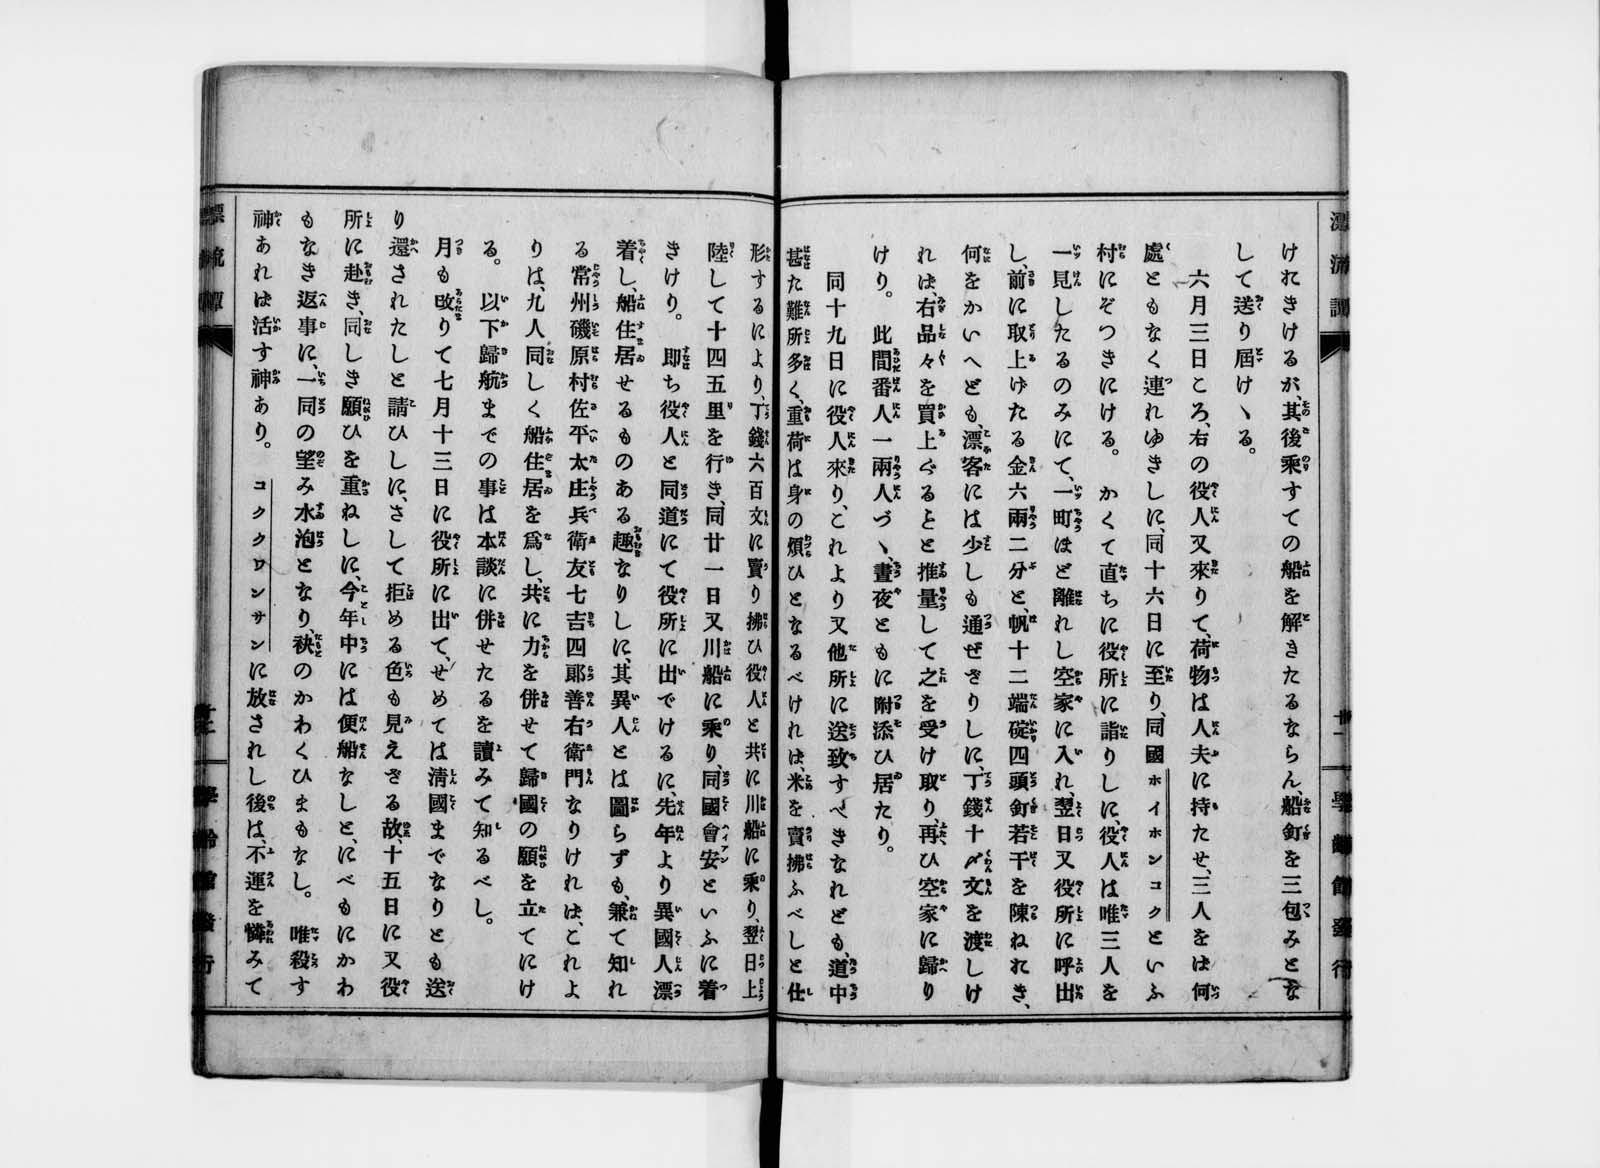 漂流譚
けれきけるが、其後乘すての船を解きたるならん、船釘を三包みとな
して送り屆けゝる。
六月三日ころ、右の役人又來りて、荷物は人夫に持たせ、三人をは何
處ともなく連れゆきしに、同十六日に至り、同國ホイホンコクといふ
村にぞつきにける。　かくて直ちに役所に詣りしに、役人は唯三人を
一見したるのみにて、一町ほど離れし空家に入れ、翌日又役所に呼出
し、前に取上げたる金六兩二分と、帆十二端碇四頭釘若干を陳ねれき、
何をかいへども、漂客には少しも通ぜざりしに、丁錢十〆文を渡しけ
れは、右品々を買上ぐるよと推量して之を受け取り、再ひ空家に歸り
けり。　此間番人一兩人づゝ、晝夜ともに附添ひ居たり。
同十九日に役人來り、これより又他所に送致すべきなれども、道中
甚た難所多く、重荷は身の煩ひとなるべけれは、米を賣拂ふべしと仕
學齡館發行
形するにより、丁錢六百文に賣り拂ひ役人と共に川船に乘り、翌日上
陸して十四五里を行き、同廿一日又川船に乘り、同國會安といふに着
きけり。　即ち役人と同道にて役所に出でけるに、先年より異國人漂
着し、船住居せるものある趣なりしに、其異人とは圖らずも、兼て知れ
る常州磯原村佐平太庄兵衛友七吉四郞善右衛門なりけれは、これよ
りは、九人同しく船住居を爲し、共に力を併せて歸國の願を立てにけ
る。　以下歸航までの事は本談に併せたるを讀みて知るべし。
月も改りて七月十三日に役所に出て、せめては淸國までなりとも送
り還されたしと請ひしに、さして拒める色も見えざる故、十五日に又役
所に赴き、同しき願ひを重ねしに、今年中には便船なしと、にべもにかわ
もなき返事に、一同の望み水泡となり、袂のかわくひまもなし。　唯殺す
神あれは活す神あり。　コクウロンサンに放されし後は、不運を憐みて
漂流譚
學齡館發行